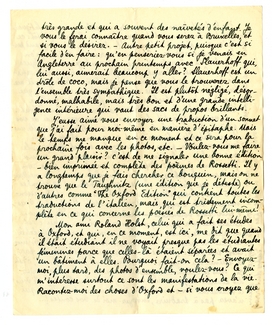 très grande et qui a souvent des naïvetés d'enfant. Je
vous le ferai connaître quand vous serez à Bruxelles, et
si vous le désirez. — Autre petit projet, puisque c'est si
facile d'en faire : qu'en penseriez-vous si je venais en
Angleterre au printemps avec J. Slauerhoff qui,
lui aussi, aimerait beaucoup y aller? Slauerhoff est un
drôle de coco, mais je pense que vous le trouverez, dans
l'ensemble très sympathique. Il est plutôt négligé, désor-
donné, malhabile, mais très bon et d'une grande intelli-
gence intérieure qui vaut des tas de propos brillants.
J'eusse aimé vous envoyer une traduction d'un sonnet
que j'ai fait pour moi-même en manière d'épitaphe. Mais
le temps me manque en ce moment et ce sera pour la
prochaine fois avec les photos, etc. — Voulez-vous me faire
un grand plaisir? c'est de me signaler une bonne édition,
bien imprimée et complète des poèmes de Rossetti. Il y
a longtemps que je fais chercher ce bouquin, mais on ne
trouve que la Tauchnitz (une édition que je déteste) ou
d'autres comme "the Oxford Edition" qui contient toutes les
traductions de l'italien, mais qui est tristement incom-
plète en ce qui concerne les poésies de Rossetti lui-même.
Mon ami Roland Holst, celui qui a fait ses études
à Oxford, et qui, en ce moment, est ici, me dit que quand
il était étudiant il ne voyait presque pas les étudiantes
féminines parce que celles-là étaient séparées et avaient
un bâtiment à elles. Pourquoi fait-on cela? — Envoyez-
moi, plus tard, des photos d'ensemble, voulez-vous? Ce qui
m'intéresse surtout ce sont les manifestations de la vie.
Racontez-moi des choses d'Oxford et — si vous croyez que